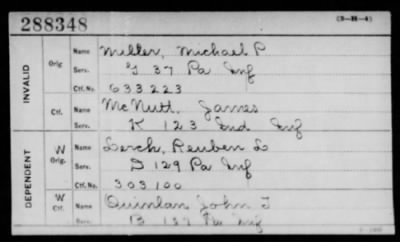 288348
(3-M-4)
INVALID
Orig. Name Miller, Michael P
Serv. G 37 Pa Inf
Ctf. No. 633223
Ctf. Name McNutt, James
Serv. K 123 Ind Inf
DEPENDENT
W Orig. Name Lerch, Reuben L
Serv. D 129 Pa Inf
Ctf. No. 303100
W Ctf. Name Quinlan John
Serv. B Pa Inf